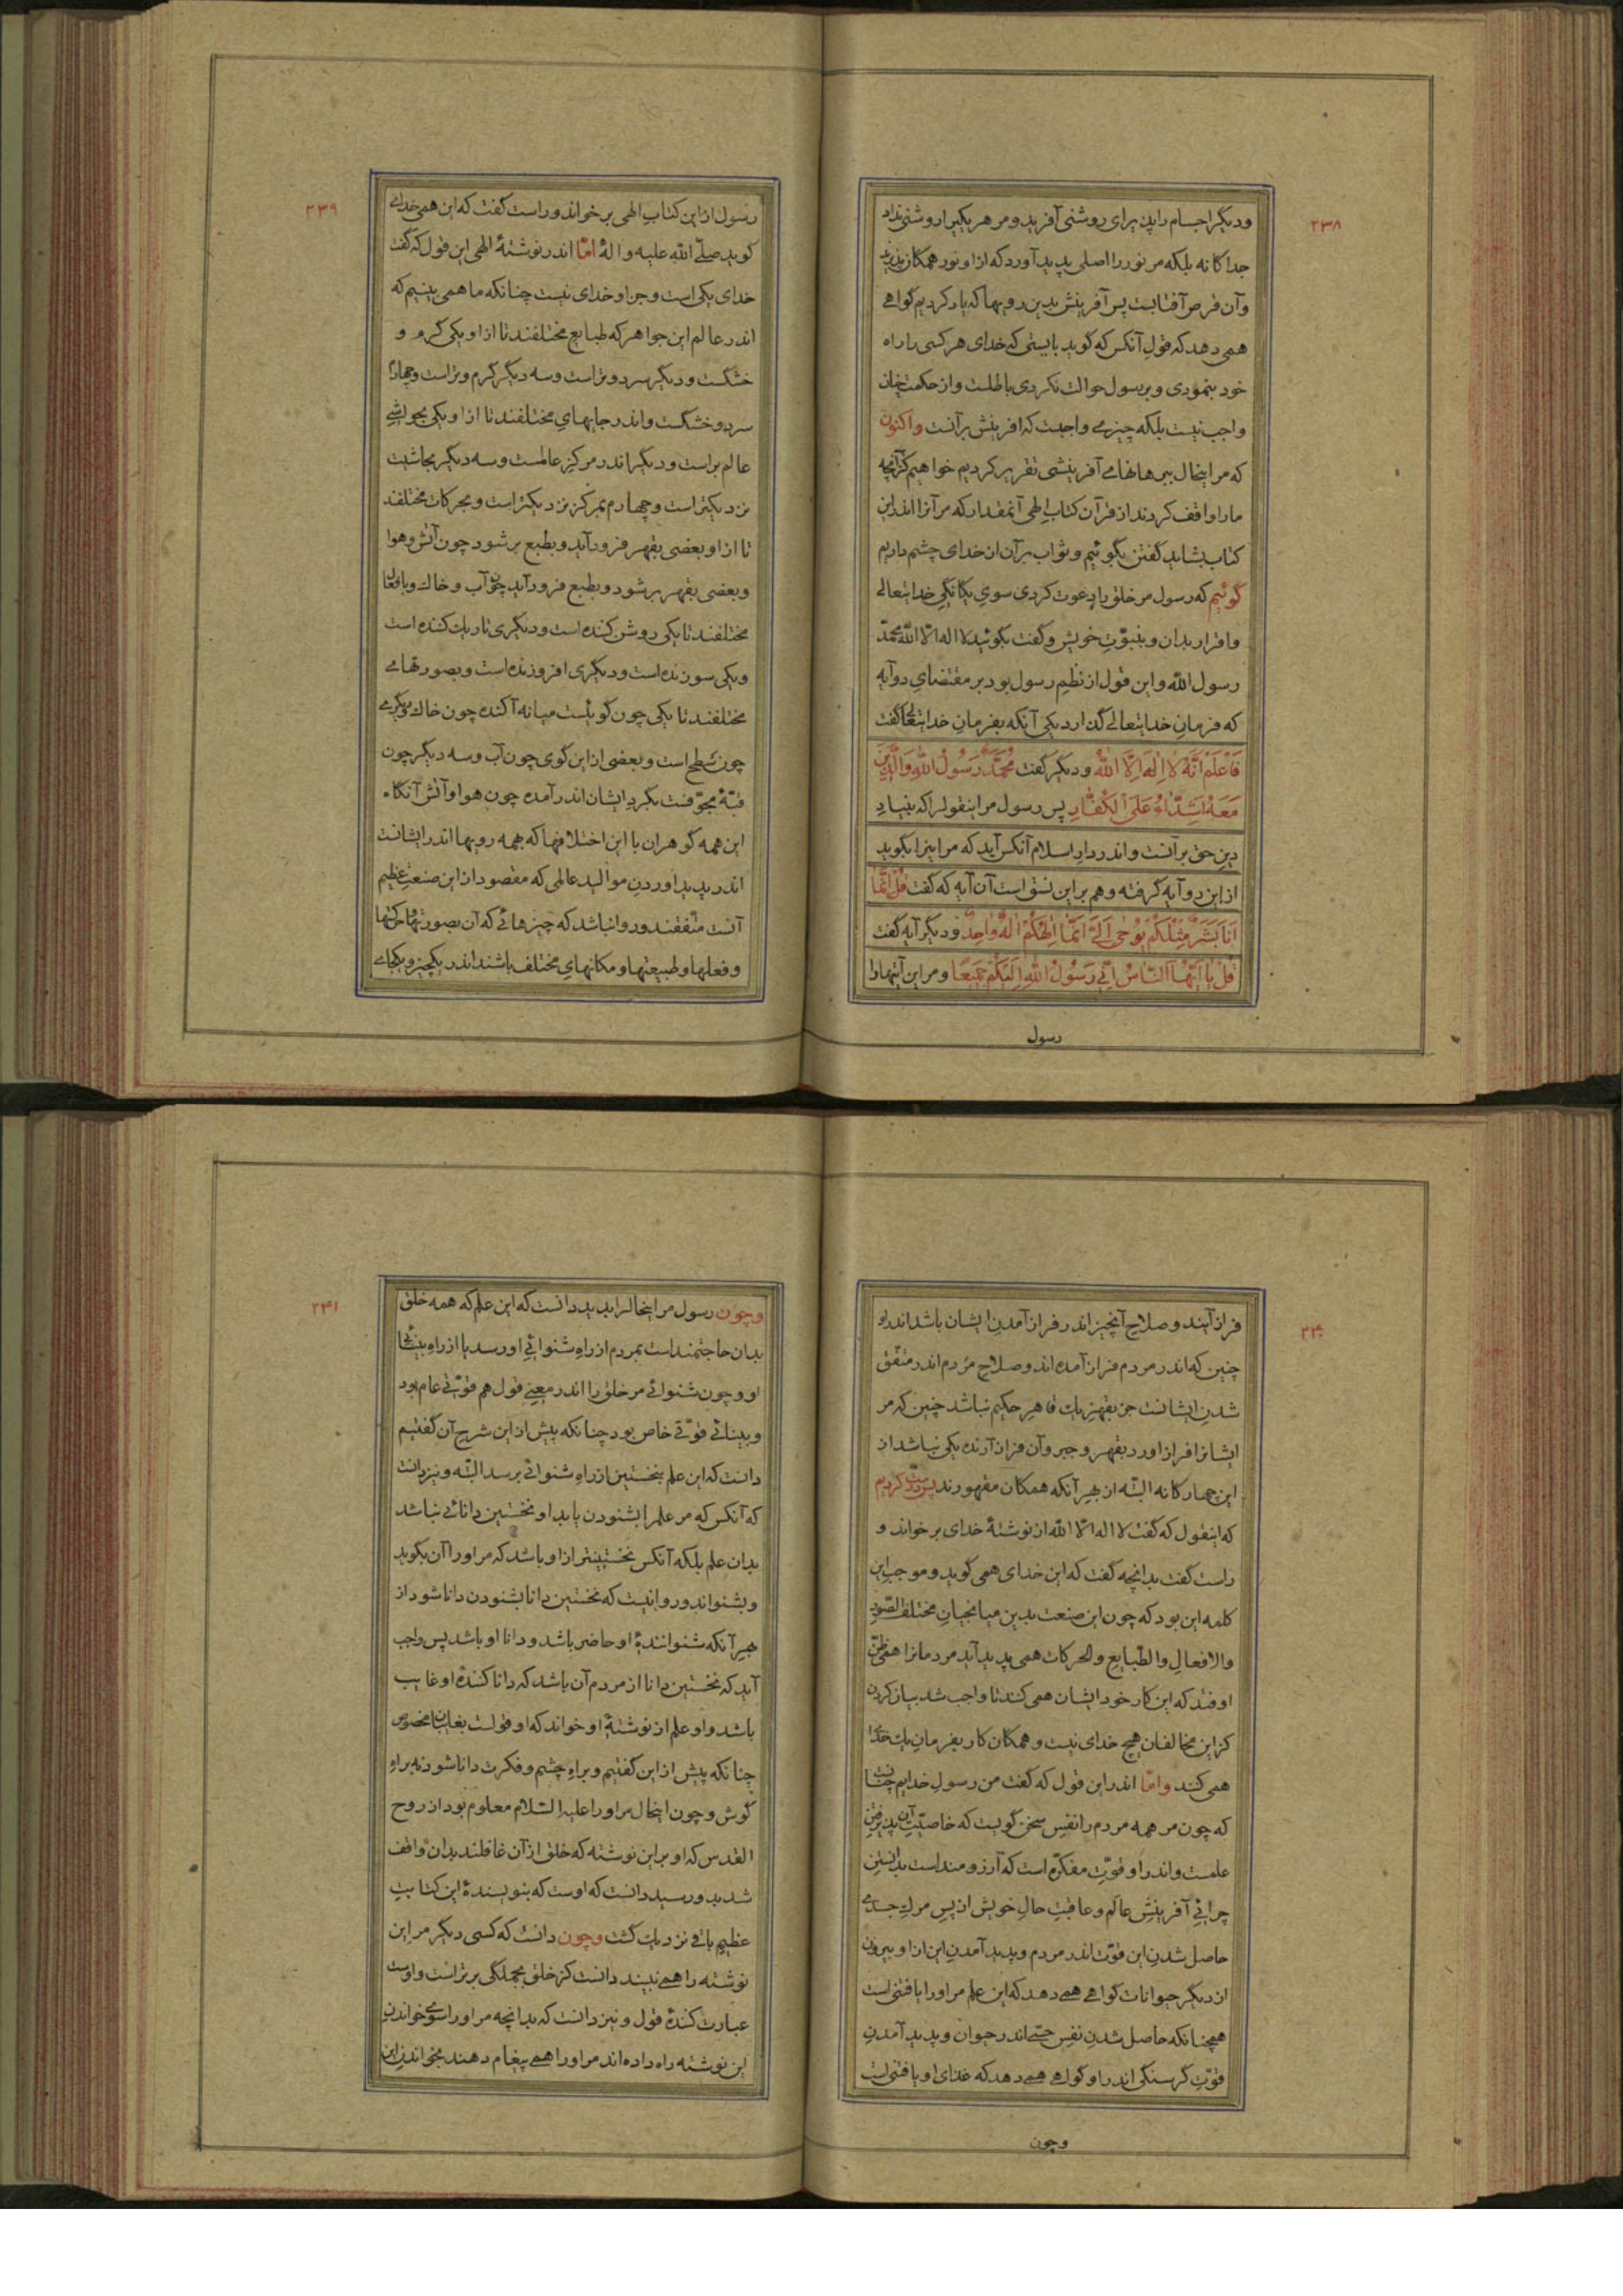 ۲۳۸
و دیگر اجسام را پذیرای روشنی آفرید و مر هر یکی را روشنی نداد
جداگانه بلکه مر نور را اصلی پدید آورد که از او نور همگان پذیرند
و آن قرص آفتابست پس آفرینش بدین رویها که یاد کردیم گواهی
همی دهد که قول آنکس که گوید بایستی که خدای هر کسی را راه
خود بنمودی و برسول حوالت نکردی باطلست و از حکمت چنان
واجب نیست بلکه چیزی واجبست که آفرینش برآنست واکنون
که مر اینحال ببرهانهای آفرینشی تقریر کردیم خواهیم کز آنچه
ما را واقف کردند از قرآن کتاب الهی آنمقدار که مر آنرا اندر این
کتاب بشاید گفتن بگوئیم و ثواب بر آن از خدای چشم داریم
گوئیم که رسول مر خلق را دعوت کردی سوی یگانگی خدایتعالی
و اقرار بدان و بنبوّت خویش و گفت بگوئید لا اله الّا اللّه محمّد
رسول اللّه و این قول از نظم رسول بود بر مقتضای دو آیه
که فرمان خدایتعالی گذارد یکی آنکه بفرمان خدایتعالی گفت
فَاعْلَمْ اَنَّهُ لا اِلٰهَ اِلَّا اللّهُ و دیگر گفت مُحَمَّدٌ رَسُولُ اللّهِ وَالَّذِینَ
مَعَهُ اَشِدّاءُ عَلَی الْکُفّارِ پس رسول مر اینقول را که بنیاد
دین حق برآنست و اندر دار اسلام آنکس آید که مر اینرا بگوید
از این دو آیه گرفته و هم بر این نسق است آن آیه که گفت قُلْ اِنَّما
اَنَا بَشَرٌ مِثْلُکُمْ یُوحیٰ اِلَیَّ اَنَّما اِلٰهُکُمْ اِلٰهٌ واحِدٌ و دیگر آیه گفت
قُلْ یا اَیُّهَا النّاسُ اِنّی رَسُولُ اللّهِ اِلَیْکُمْ جَمیعًا و مر این آیتها را
رسول
۲۳۹
رسول از این کتاب الهی بر خواند و راست گفت که این همی خدای
گوید صلّی اللّه علیه و اله امّا اندر نوشتهٔ الهی این قول که گفت
خدای یکی است و جز او خدای نیست چنانکه ما همی بینیم که
اندر عالم این جواهر که طبایع مختلفند تا از او یکی گرم و
خشکست و دیگر سرد و تر است و سه دیگر گرم و تر است و چهارم
سرد و خشکست و اندر جایهای مختلفند تا از او یکی بحواشی
عالم بر است و دیگر اندر مرکز عالمست و سه دیگر بحاشیت
نزدیکتر است و چهارم بمرکز نزدیکتر است و بحرکات مختلفند
تا از او بعضی بقهر فرود آید و بطبع بر شود چون آتش و هوا
و بعضی بقهر بر شود و بطبع فرود آید چون آب و خاک و بافعال
مختلفند تا یکی روشن کننده است و دیگری تاریک کننده است
و یکی سوزنده است و دیگری افروزنده است و بصورتهای
مختلفند تا یکی چون گوئیست میانه آکنده چون خاک و دیگری
چون سطح است و بعضی از این گوی چون آب و سه دیگر چون
قبّهٔ مجوّفست بگرد ایشان اندر آمده چون هوا و آتش آنگاه
این همه گوهران با این اختلافها که بهمه رویها اندر ایشانست
اندر پدید اوردن موالید عالمی که مقصود از این صنعت عظیم
آنست متّفقند و روا نباشد که چیزهائی که آن بصورتها و حرکتها
و فعلها و طبیعتها و مکانهای مختلف باشند اندر یکچیز و یکجای
۲۴۰
فراز آیند و صلاح آنچیز اندر فراز آمدن ایشان باشد اندر او
چنین که اندر مردم فراز آمده اند و صلاح مردم اندر متّفق
شدن ایشانست جز بقهر یک قاهر حکیم نباشد چنین که مر
ایشانرا فراز اورد بقهر و جبر و آن فراز آرنده یکی نباشد از
این چهارگانه البتّه از بهر آنکه همگان مقهورند پس درست کردیم
که اینقول که گفت لا اله الّا اللّه از نوشتهٔ خدای بر خواند و
راست گفت بدانچه گفت که این خدای همی گوید و موجب این
کلمه این بود که چون این صنعت بدین میانجیان مختلف الصّور
والافعال والطّبایع والحرکات همی پدید آید مردمانرا همی ظنّ
اوفتد که این کار خود ایشان همی کنند تا واجب شد بیان کردن
کز این مخالفان هیچ خدای نیست و همگان کار بفرمان یک خدا
همی کنند و امّا اندر این قول که گفت من رسول خدایم چنانست
که چون مر همه مردم را نفس سخن گویست که خاصیّت آن پذیرفتن
علمست و اندر او قوّت مفکّره است که آرزومند است بدانستن
چرائی آفرینش عالم و عاقبت حال خویش از پس مرگ جسدی
حاصل شدن این قوّت اندر مردم و پدید آمدن این از او بیرون
از دیگر حیوانات گواهی همی دهد که این علم مر او را یافتنی است
همچنانکه حاصل شدن نفس حسّی اندر حیوان و پدید آمدن
قوّت گرسنگی اندر او گواهی همی دهد که غذای او یافتنی است
وچون
۲۴۱
وچون رسول مر اینحال را بدید دانست که این علم که همه خلق
بدان حاجتمند است بمردم از راه شنوائی او رسد یا از راه بینائی
او و چون شنوائی مر خلق را اندر معنی قول هم قوّتی عام بود
و بینائی قوّتی خاص بود چنانکه پیش از این شرح آن گفتیم
دانست که این علم نخستین از راه شنوائی نرسد البتّه و نیز دانست
که آنکس که مر علم را بشنودن یابد او نخستین دانائی نباشد
بدان علم بلکه آنکس نخستینتر از او باشد که مر او را آن بگوید
و بشنواند و روا نیست که نخستین دانا بشنودن دانا شود از
بهر آنکه شنوانندهٔ او حاضر باشد و دانا او باشد پس واجب
آید که نخستین دانا از مردم آن باشد که دانا کنندهٔ او غایب
باشد و او علم از نوشتهٔ او خواند که او قولست بغایبان مخصوص
چنانکه پیش از این گفتیم و براه چشم و فکرت دانا شود نه براه
گوش و چون اینحال مر او را علیه السّلام معلوم بود از روح
القدس که او بر این نوشته که خلق از آن غافلند بدان واقف
شد بدو رسید دانست که اوست که بنویسندهٔ این کتابت
عظیم باقی نزدیک گشت وچون دانست که کسی دیگر مر این
نوشته را همی نبیند دانست کز خلق بجملگی برتر است و اوست
عبارت کنندهٔ قول و نیز دانست که بدانچه مر او را سوی خواندن
این نوشته راه داده اند مر او را همی پیغام دهند بخواندن این